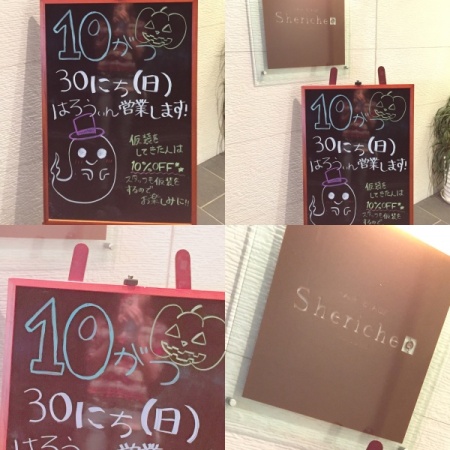 10がつ
30にち(日)
はろうぃん営業します!
仮装を
してきた人は
10%OFF
スタッフも仮装を
するので
お楽しみに!!
Sheriche
10がつ
30にち(日)
はろうぃん営業します!
仮装を
してきた人は
10%OFF
スタッフも仮装を
するので
お楽しみに!!
10がつ
30にち(日)
はろうぃん営業
Sheriche